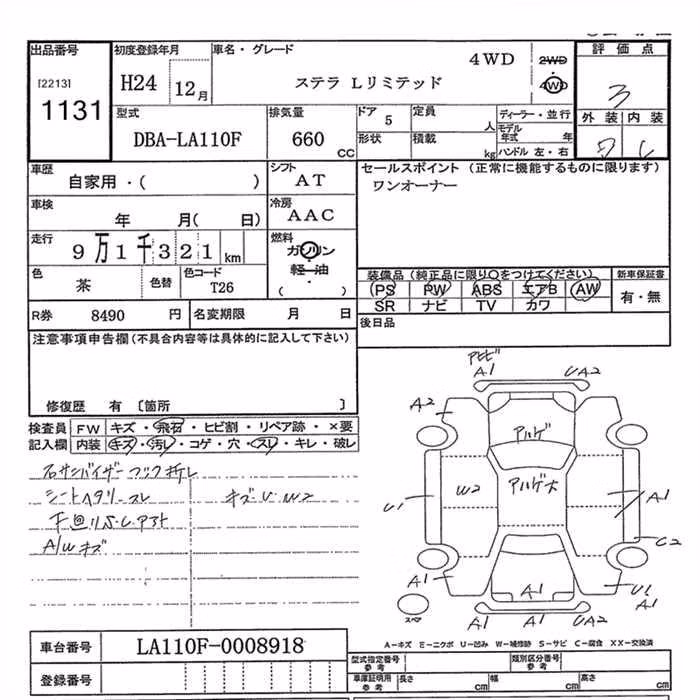 出品番号 初度登録年月 車名・グレード 4WD 2WD 評価点
[2213] H24 12月 ステラ Lリミテッド 4WD 3
1131 外装 内装
型式 排気量 ドア 5 定員 人 ディーラー・並行
DBA-LA110F 660 CC 形状 積載 kg モデル年式 年
ハンドル 左・右
車歴 シフト セールスポイント (正常に機能するものに限ります)
自家用・( ) AT ワンオーナー
車検 冷房
年 月( 日) AAC
走行 燃料
9万1千321km ガソリン
軽・油
( )
色 色替 色コード 装備品 (純正品に限り○をつけてください) 新車保証書
茶 T26 PS PW ABS エアB AW 有・無
SR ナビ TV カワ
R券 8490 円 名変期限 月 日 後日品
注意事項申告欄 (不具合内容等は具体的に記入して下さい)
修復歴 有 〔箇所 〕
検査員 FW キズ・飛石・ヒビ割・リペア跡・×要
記入欄 内装 キズ・汚レ・コゲ・穴・スレ・キレ・破レ
右サンバイザーフック折レ
シートヘタリ・スレ キズ U・W2
A/Wキズ
アルゲ
アルゲ大
A1 UA2
A2
W2
U1 A1
C2
A1 A1 U1
A1
A1 A1 UA2
スペア
A-キズ E-エクボ U-凹み W-補修跡 S-サビ C-腐食 XX-交換済
車台番号 LA110F-0008918
型式指定番号 参考 類別区分番号 参考
登録番号 車庫証明用 参考 長さ cm 幅 cm 高さ cm